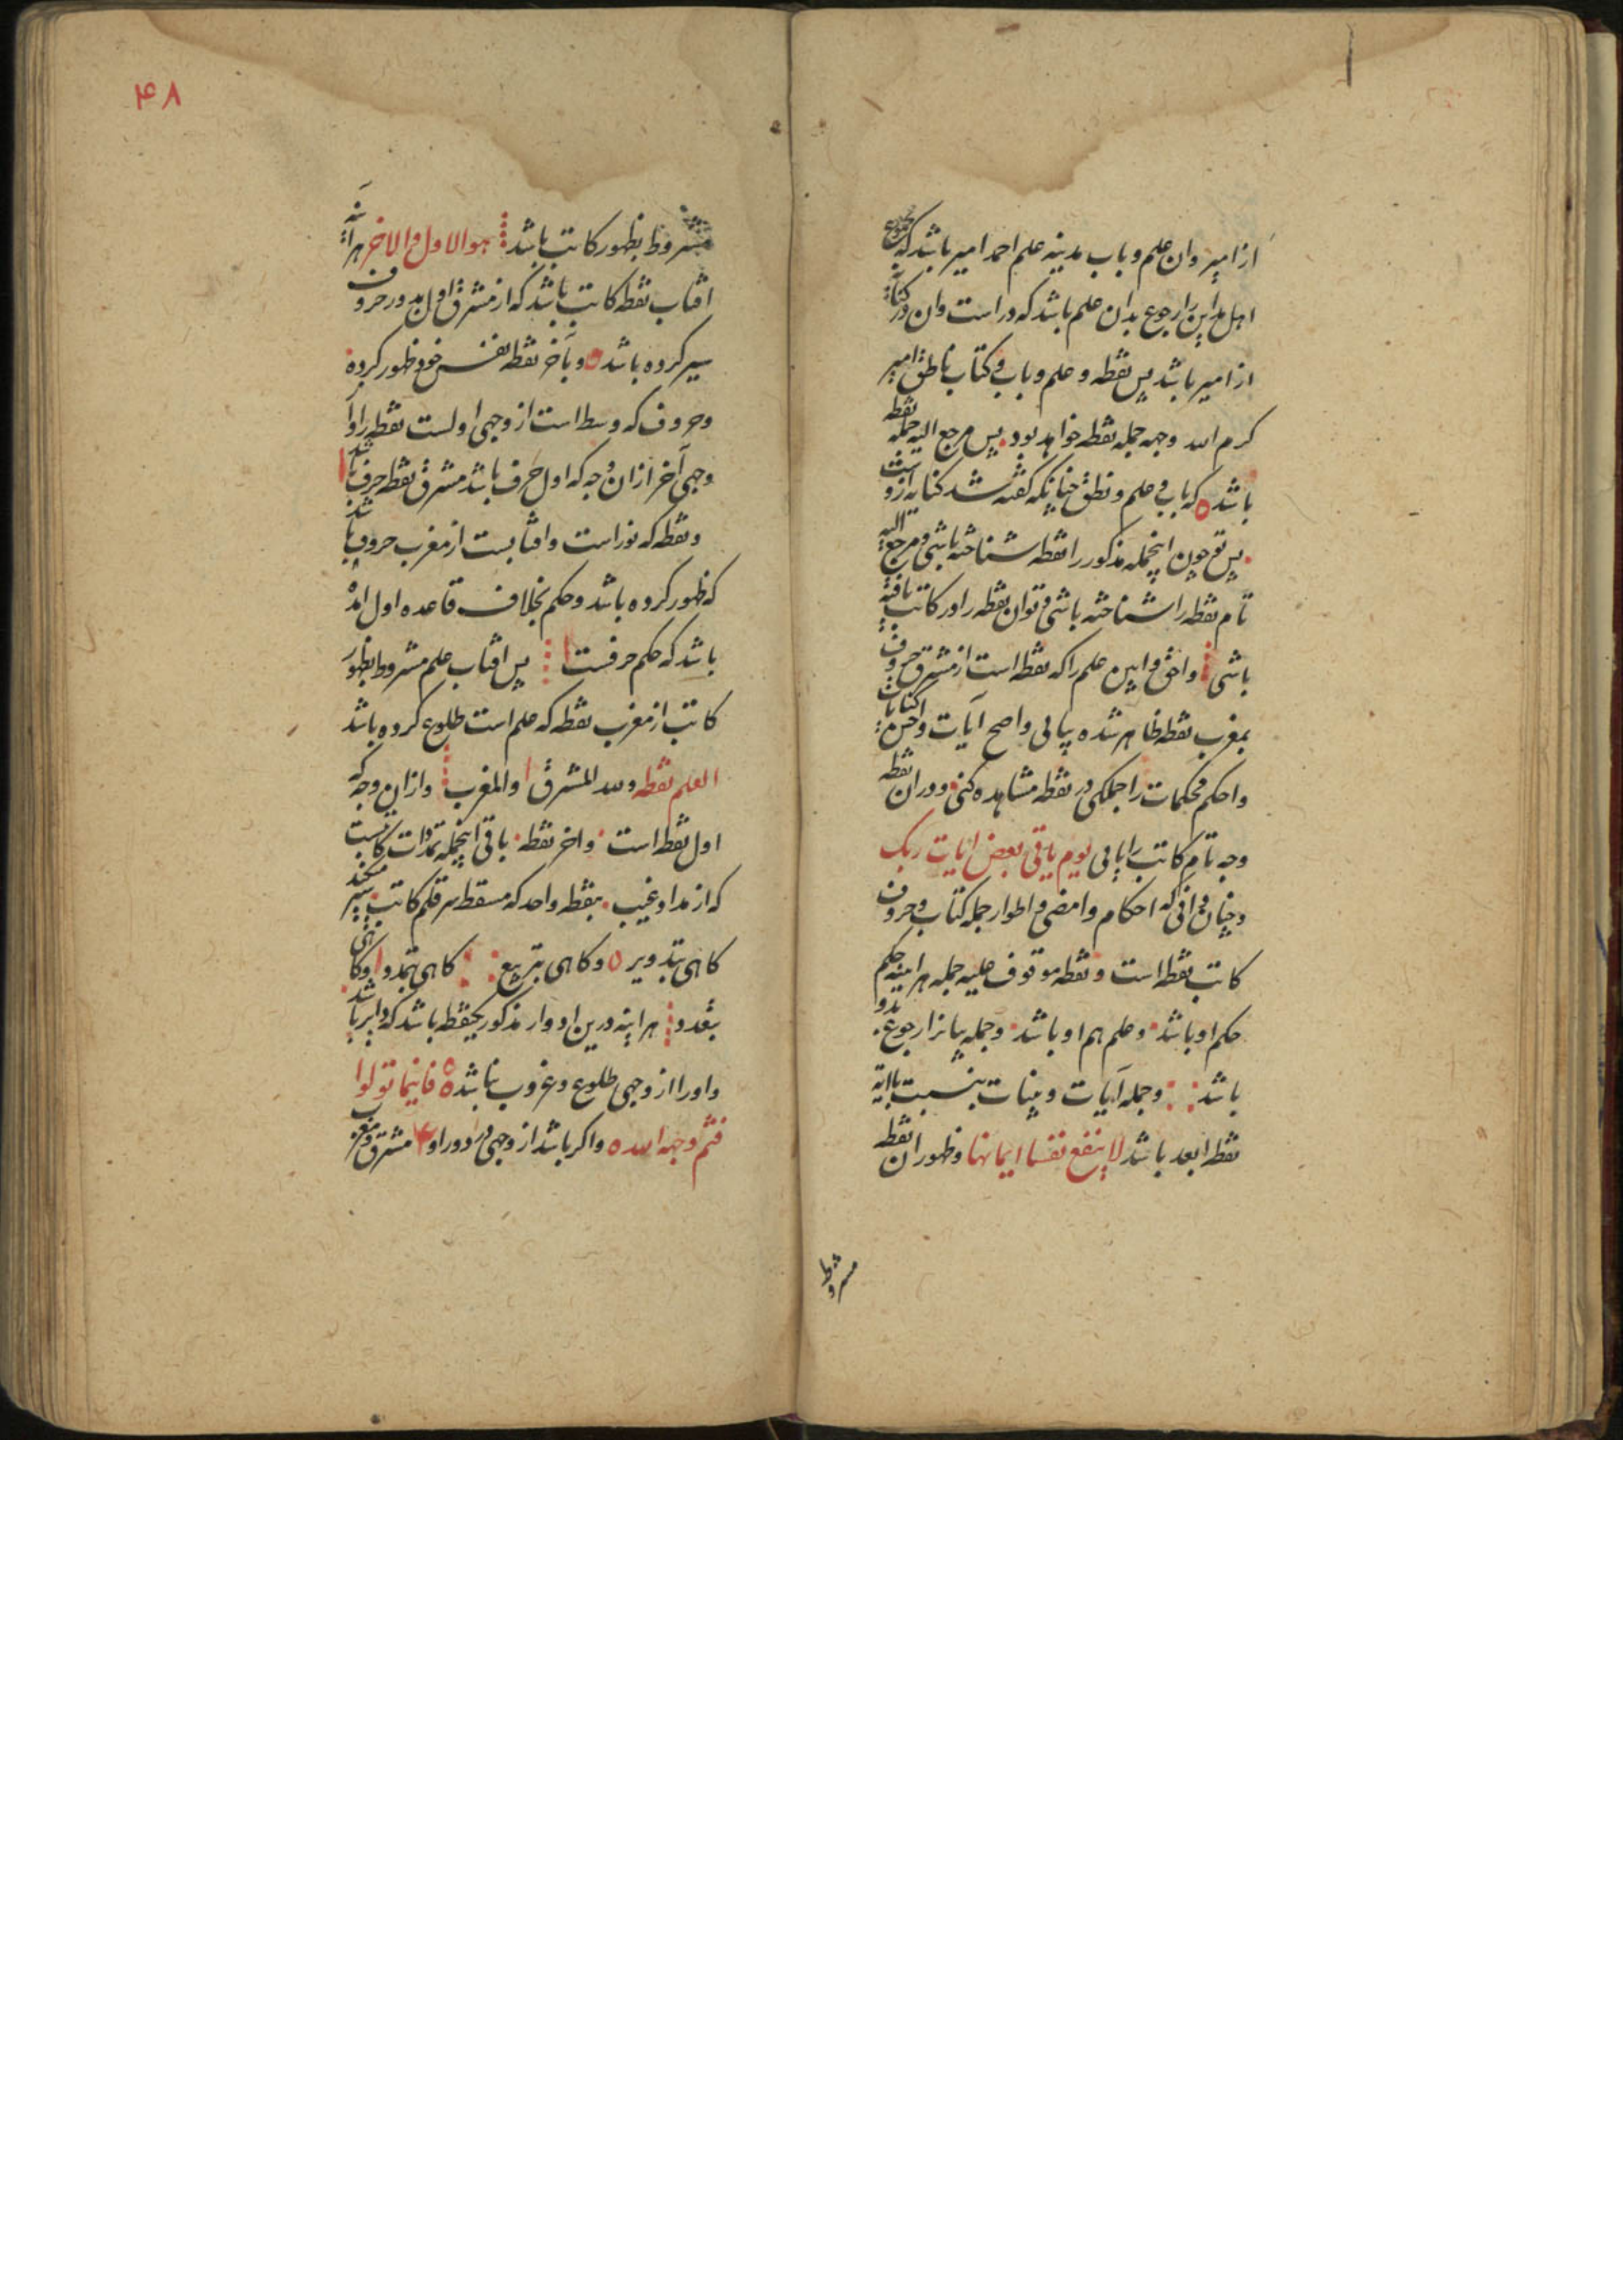 از امیر وان علم و باب مدینه علم احمد امیر باشد که
اهل مداین را رجوع بدان علم باشد که در است وان در کتابة
از امیر باشد پس نقطه و علم و باب و کتاب ناطق امیر
کرم الله وجهه جمله نقطه خواهد بود پس مرجع الیه جمله نقطه
باشد که باب و علم و نطق چنانکه گفته شد کنایه ازو است
پس تو چون اینجمله مذکور را نقطه شناخته باشی و مرجع الیه
تام نقطه را شناخته باشی و توان نقطه را در کاتب یافته
باشی واحق و ابین علم را که نقطه است از مشرق حروف
بمغرب نقطه ظاهر شده یابی واصح آیات واحسن کنایات
واحکم محکمات را جملکی در نقطه مشاهده کنی ودر ان نقطه
وجه تام کاتب را یابی یوم یاتی بعض ایات ربک
وچنان دانی که احکام وامضی و اطوار جمله کتاب و حروف
کاتب نقطه است ونقطه موقوف علیه جمله هراینه حکم
حکم او باشد وعلم هم او باشد وجمله بیانرا رجوع بدو
باشد وجمله آیات وبینات بنسبت باایة
نقطه ابعد باشد لا ینفع نفسا ایمانها وظهور ان نقطه
مشروط
۴۸
مشروط بظهور کاتب باشد هو الاول والاخر هراینه
افتاب نقطه کاتب باشد که از مشرق اول بدور حروف
سیر کرده باشد وبآخر نقطه نفس خود ظهور کرده
وحروف که وسط است از وجهی اولست نقطه را واز
وجهی آخر ازان وجه که اول حرف باشد مشرق نقطه حرف باشد
ونقطه که نور است وافتابست از مغرب حروف باشد
که ظهور کرده باشد وحکم بخلاف قاعده اول امده
باشد که حکم حرفست پس افتاب علم مشروط بظهور
کاتب از مغرب نقطه که علم است طلوع کرده باشد
العلم نقطه ولله المشرق والمغرب وازان وجه که
اول نقطه است واخر نقطه باقی اینجمله تمدات کاتبست
که از مداد غیب بنقطه واحد که مسقط سر قلم کاتب سیر میکند
کاهی بتدویر وکاهی بتربیع کاهی بتمدد وکاهی
بتعدد هراینه درین ادوار مذکور یکنقطه باشد که دایر باشد
واورا از وجهی طلوع وغروب نباشد فاینما تولوا
فثم وجه الله واکر باشد از وجهی در دور او مشرق ومغرب